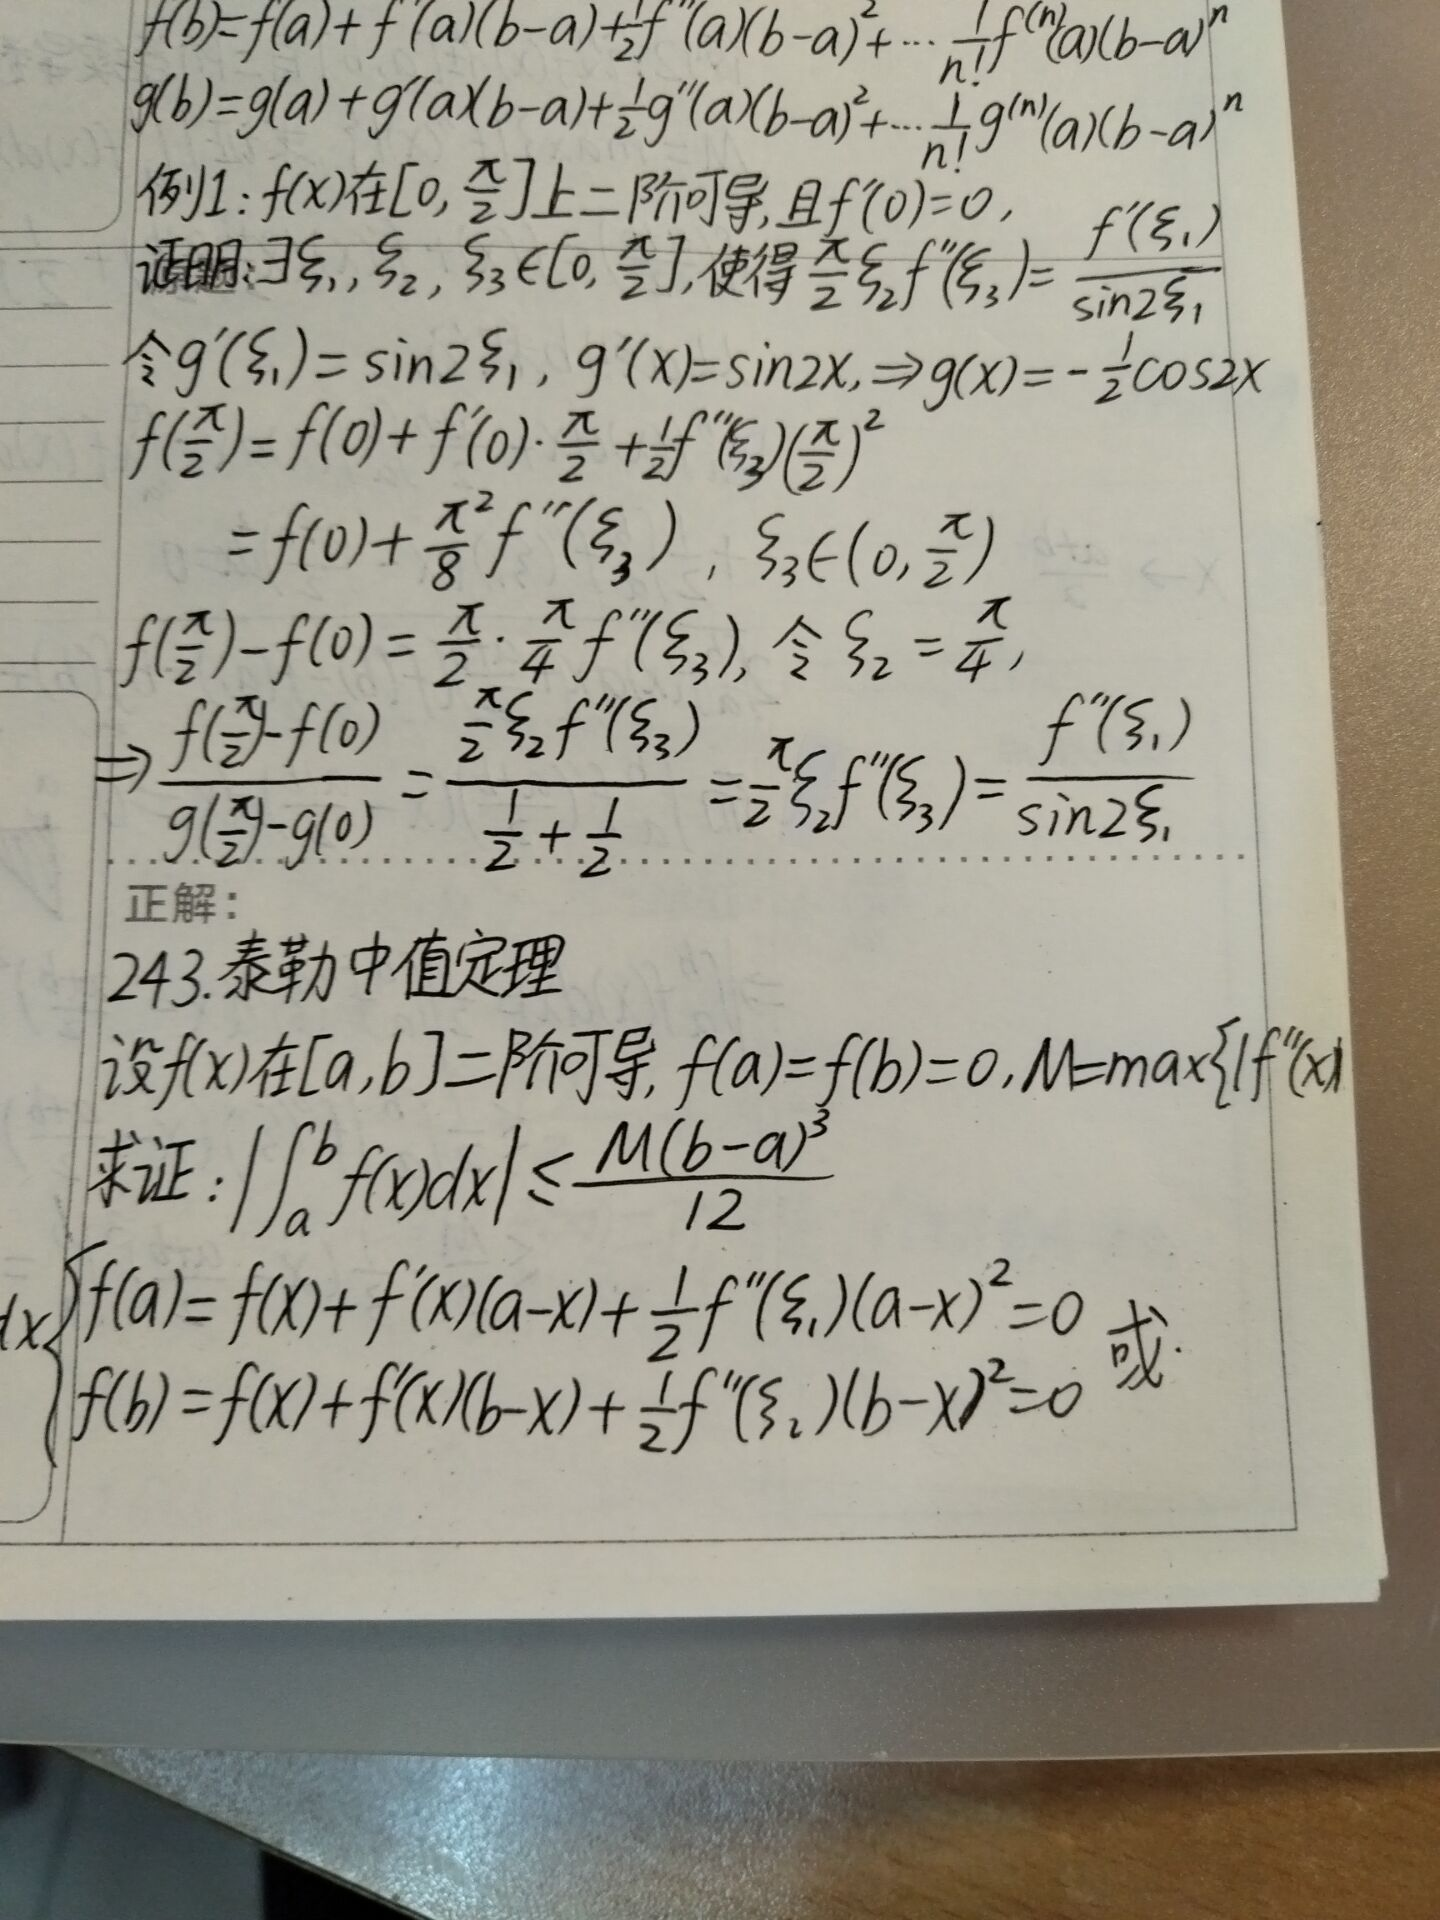 f(b)=f(a)+f'(a)(b-a)+½f''(a)(b-a)²+… 1/n! f⁽ⁿ⁾(a)(b-a)ⁿ
g(b)=g(a)+g'(a)(b-a)+½g''(a)(b-a)²+… 1/n! g⁽ⁿ⁾(a)(b-a)ⁿ
例1:f(x)在[0,π/2]上二阶可导,且f'(0)=0,
证明:∃ξ₁,ξ₂,ξ₃∈[0,π/2],使得π/2 ξ₂f''(ξ₃)=f'(ξ₁)/sin2ξ₁
令g'(ξ₁)=sin2ξ₁,g'(x)=sin2x,⇒g(x)=-½cos2x
f(π/2)=f(0)+f'(0)·π/2+½f''(ξ₃)(π/2)²
=f(0)+π²/8 f''(ξ₃),ξ₃∈(0,π/2)
f(π/2)-f(0)=π/2·π/4 f''(ξ₃),令ξ₂=π/4,
⇒(f(π/2)-f(0))/(g(π/2)-g(0))=(π/2 ξ₂f''(ξ₃))/(½+½)=π/2 ξ₂f''(ξ₃)=f''(ξ₁)/sin2ξ₁
正解:
243.泰勒中值定理
设f(x)在[a,b]二阶可导,f(a)=f(b)=0,M=max{|f''(x)|
求证:|∫ₐᵇf(x)dx|≤M(b-a)³/12
dx
{f(a)=f(x)+f'(x)(a-x)+½f''(ξ₁)(a-x)²=0 或.
f(b)=f(x)+f'(x)(b-x)+½f''(ξ₂)(b-x)²=0